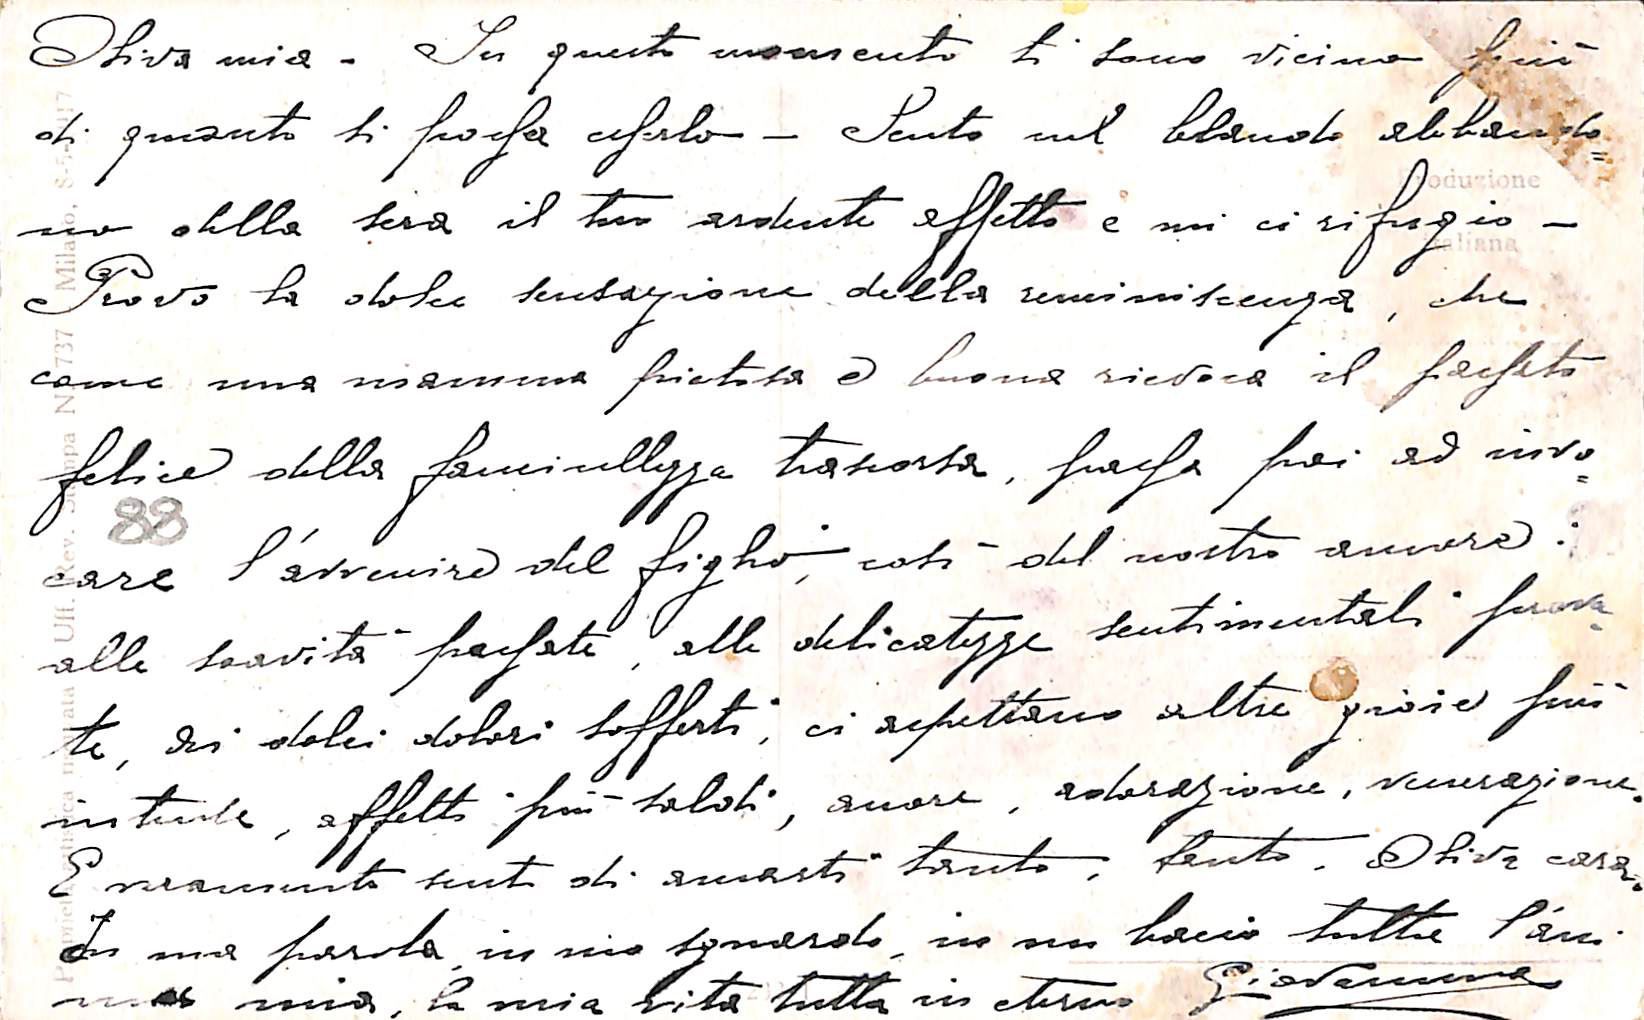 Oliva mia - In questo momento ti sono vicino più
di quanto ti possa esserlo - Sento nel blando abbando=
no della sera il tuo ardente affetto e mi ci rifugio -
Provo la dolce sensazione della reminiscenza, che
come una mamma pietosa e buona rievoca il passato
felice della fanciullezza trascorsa, passa poi ad invo=
care l'avvenire del figlio, così del nostro amore:
alle soavità passate, alle delicatezze sentimentali prova=
te, ai dolci dolori sofferti, ci aspettano altre gioie più
intense, affetti più saldi, amore, adorazione, venerazione.
E veramente sento di amarti tanto, tanto. Oliva cara.
In una parola, in uno sguardo, in un bacio tutta l'ani
ma mia, la mia vita tutta in eterno Giovanna
88
Produzione
italiana
Uff. Rev. Stampa N. 737 Milano, 8-5-917